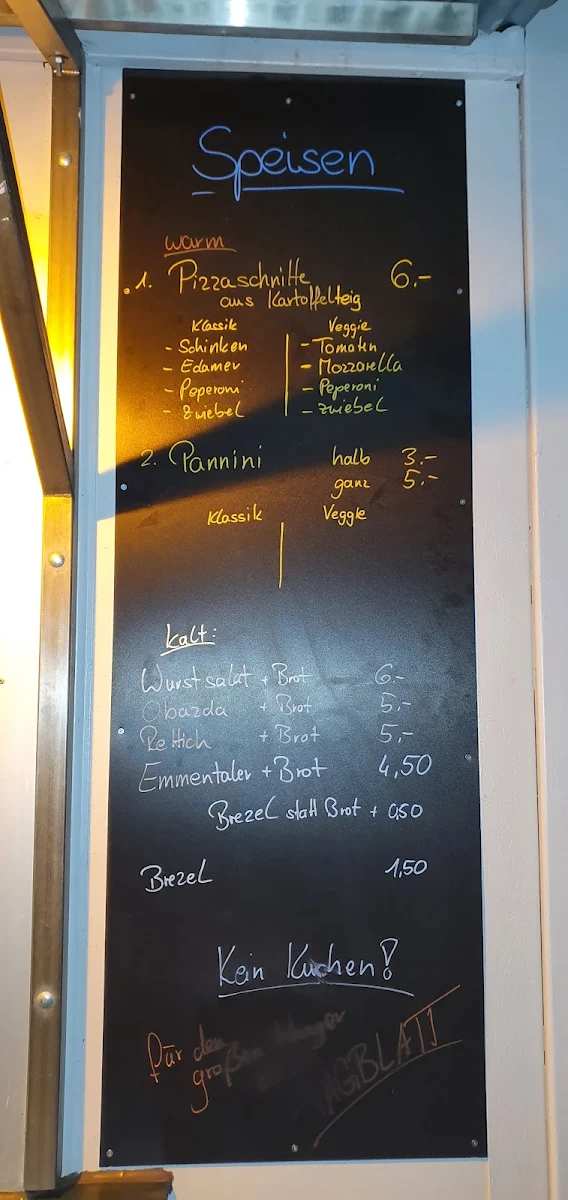 Speisen
warm
1. Pizzaschnitte 6.-
aus Kartoffelteig
Klassik Veggie
- Schinken - Tomatn
- Edamer - Mozzarella
- Peperoni - Peperoni
- Zwiebel - Zwiebel
2. Pannini halb 3.-
ganz 5.-
Klassik Veggie
kalt:
Wurstsalat + Brot 6.-
Obazda + Brot 5.-
Rettich + Brot 5,-
Emmentaler + Brot 4,50
Brezel statt Brot + 0,50
Brezel 1,50
Kein Kuchen!
für den
großen Hunger
AGBLATT